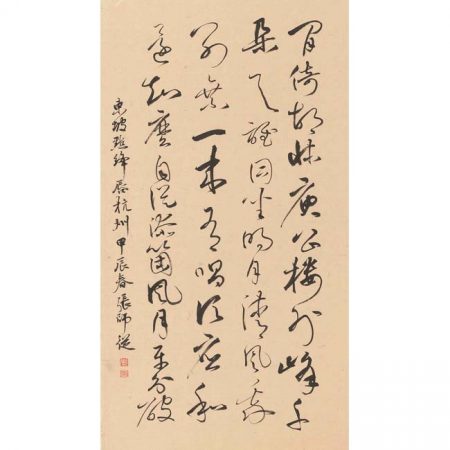 閒倚胡床庾公樓外峰千
朵與誰同坐明月清風我
別乘一來有唱須應和
還知麼自從添箇風月平分破
東坡點絳唇杭州甲辰春張師從